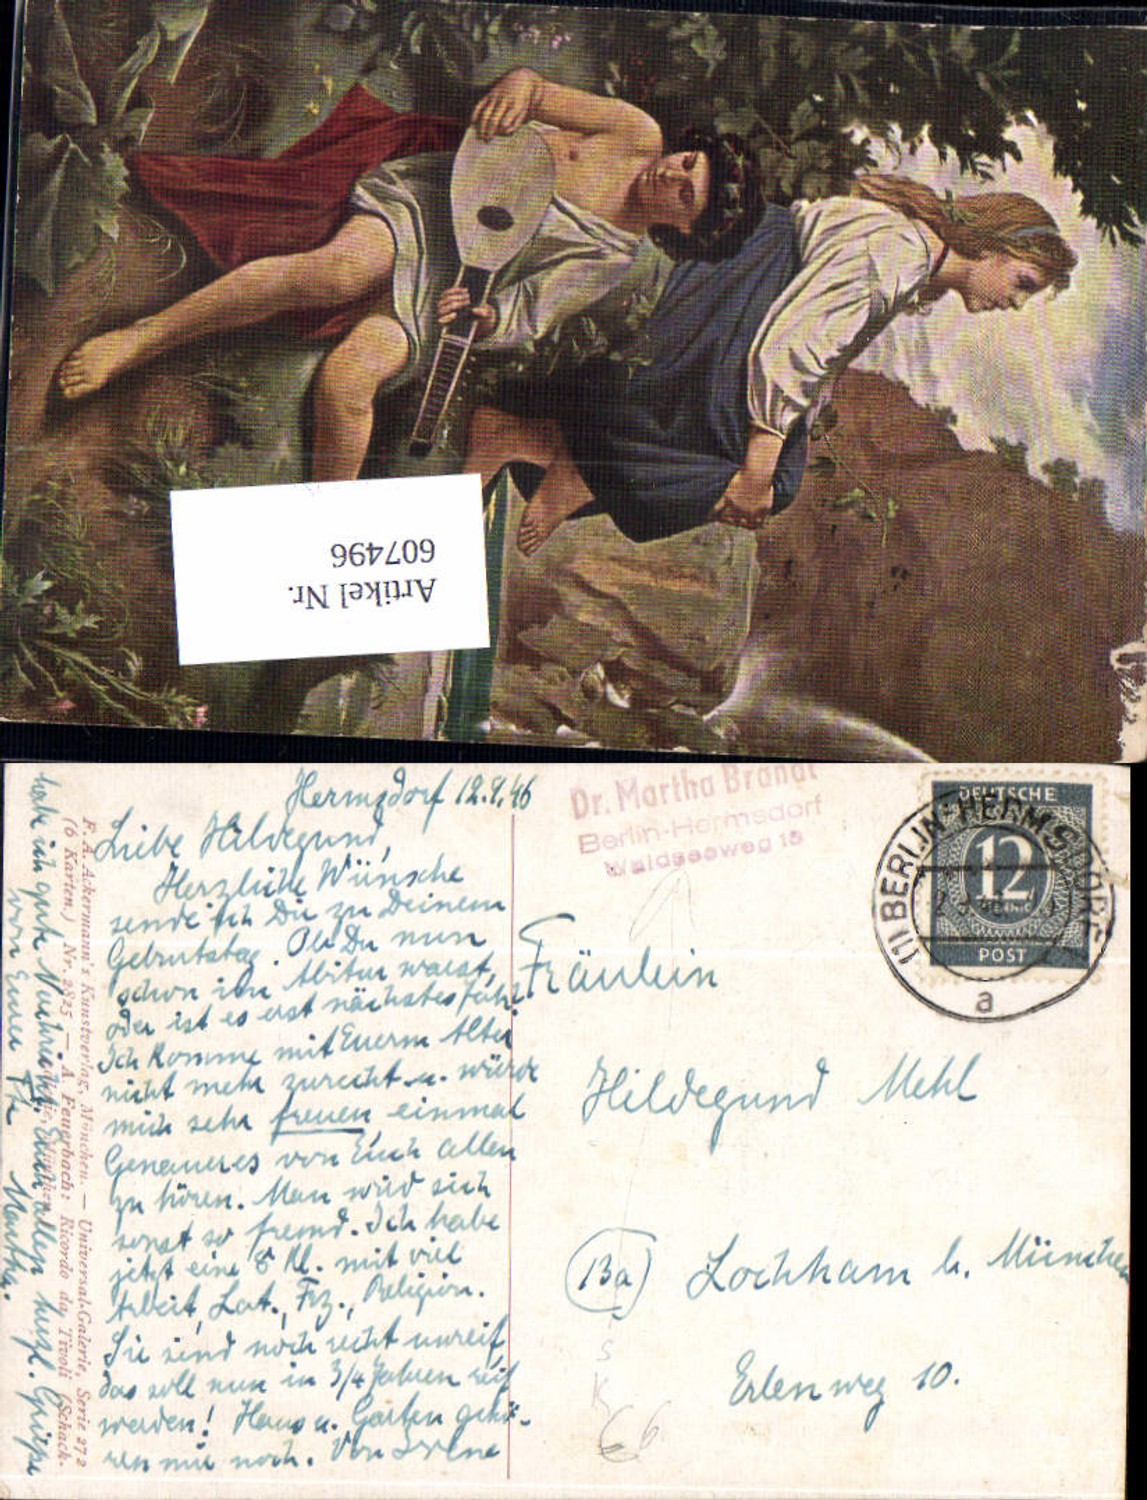 Artikel Nr.
607496
Hermsdorf 12.9.46
Liebe Hildegund,
Herzliche Wünsche
sende ich Dir zu Deinem
Geburtstag. Ob Du nun
schon im Abitur warst,
oder ist es erst nächstes Jahr?
Ich komme mit Euerm Alter
nicht mehr zurecht u. würde
mich sehr freuen, einmal
Genaueres von Euch allen
zu hören. Man wird sich
sonst so fremd. Ich habe
jetzt eine 8 Kl. mit viel
Arbeit, Lat., Frz., Religion.
Sie sind noch recht unreif,
das soll nun in 3/4 Jahren reif
werden! Haus u. Garten gehö-
ren mir noch. Von Irene
habe ich gute Nachricht. Euch allen herzl. Grüße
von Eurer Martha.
F. A. Ackermann's Kunstverlag, München. — Universal-Galerie, Serie 272
(6 Karten.) Nr. 2825 — A. Feuerbach: Ricordo da Tivoli (Schack-
Dr. Martha Brandt
Berlin-Hermsdorf
Waldseeweg 15
DEUTSCHE
12
POST
(1) BERLIN-HERMSDORF
a
Fräulein
Hildegund Mehl
(13a) Lochham b. München
Erlenweg 10.